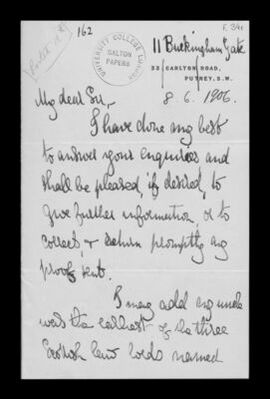 162
UNIVERSITY COLLEGE LONDON
GALTON PAPERS
11 Buckingham Gate
33 CARLTON ROAD,
PUTNEY, S.W.
8. 6. 1906.
My dear Sir,-
I have done my best
to answer your enquiries and
shall be pleased, if desired, to
give further information or to
correct & return promptly any
proof sent.
I may add my uncle
was the earliest of the three
Scottish law lords named